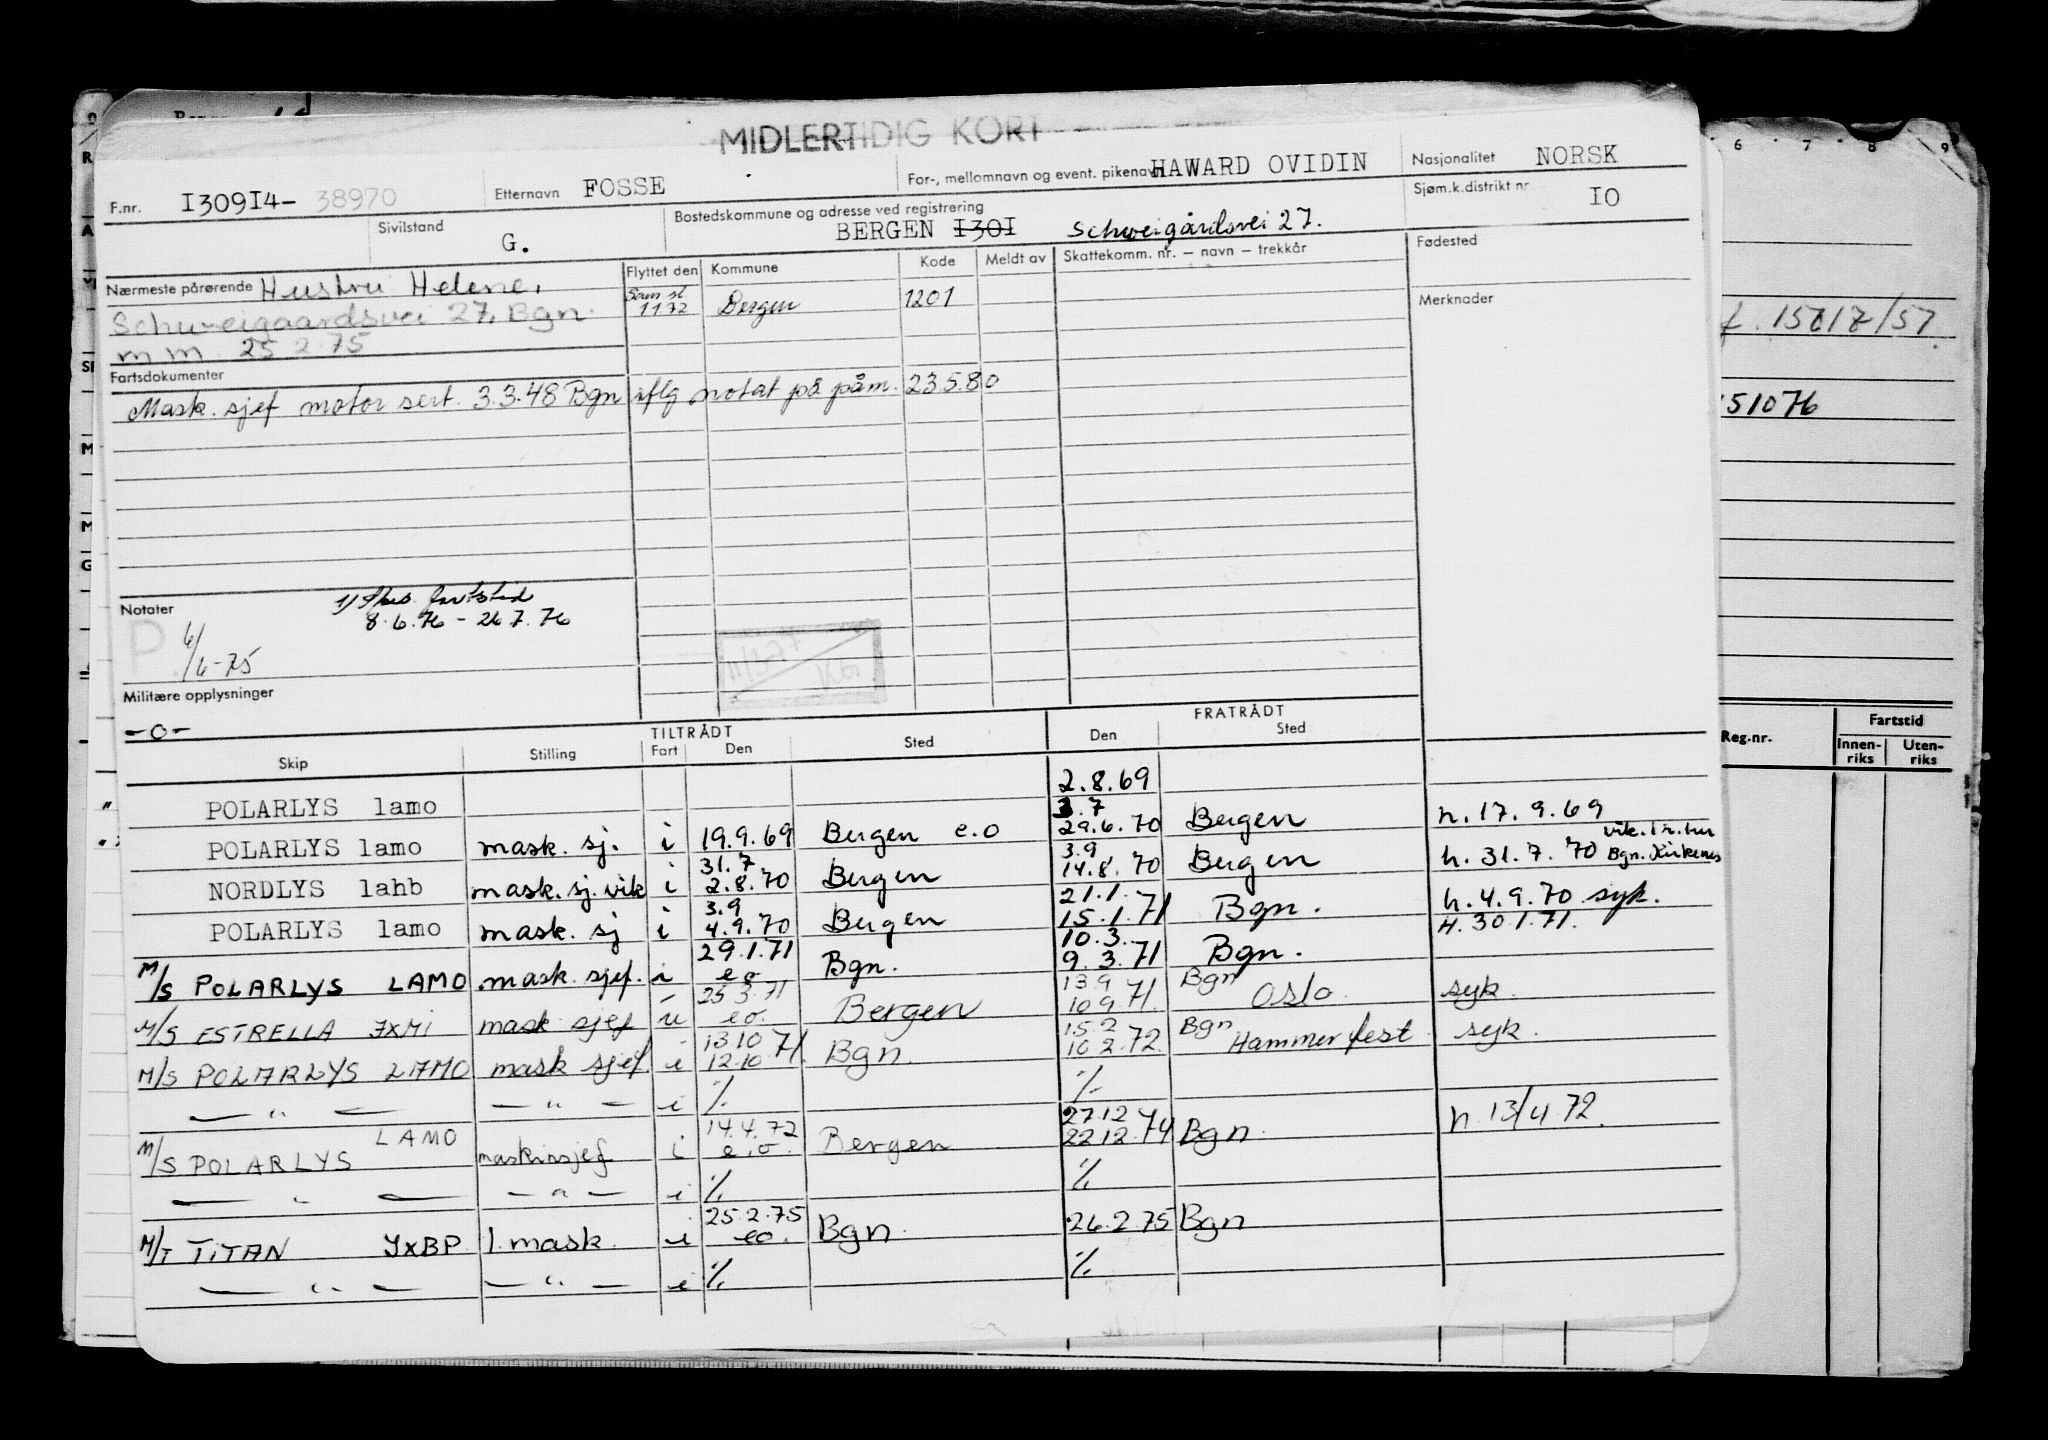 MIDLERTIDIG KORT
F.nr. I309I4- 38970 Etternavn FOSSE For-, mellomnavn og event. pikenavn HAWARD OVIDIN Nasjonalitet NORSK
Sivilstand G. Bostedskommune og adresse ved registrering BERGEN I30I Schweigårdsvei 27. Sjøm.k.distrikt nr IO
Nærmeste pårørende Hustru Helene, Flyttet den Kommune Kode Meldt av Skattekomm. nr. – navn – trekkår Fødested
Schweigaardsvei 27, Bgn. 1172 Bergen 1201 Merknader
m m. 25 2 75
Fartsdokumenter
Mask. sjef motor sert. 3.3.48 Bgn iflg notat på påm. 23.5.80
Notater 1) fartstid
8.6.76 – 26.7.76
P 6/6-75
Militære opplysninger
-o-
TILTRÅDT FRATRÅDT
Skip Stilling Fart Den Sted Den Sted
POLARLYS lamo 2.8.69
POLARLYS lamo mask. sj. i 19.9.69 Bergen e.o 3.7 29.6.70 Bergen h. 17.9.69
NORDLYS lahb mask. sj. vik i 31.7 2.8.70 Bergen 3.9 14.8.70 Bergen h. 31.7.70 Bgn. Kirkenes
POLARLYS lamo mask. sj i 3.9 4.9.70 Bergen 21.1. 15.1.71 Bgn. h. 4.9.70 syk.
H. 30.1.71.
M/S POLARLYS LAMO mask. sjef. i 29.1.71 eo Bgn. 10.3. 9.3.71 Bgn.
M/S ESTRELLA JXMI mask sjef u 25.3.71 eo. Bergen 13.9 10.9.71. Bgn Oslo syk.
M/S POLARLYS LAMO mask sjef i 13.10 12.10.71. Bgn. 15.2 10.2.72. Bgn Hammerfest syk.
— " — — " — i ٪ ٪
M/S POLARLYS LAMO maskinsjef i 14.4.72 e.o. Bergen 27.12 22.12.74 Bgn. h. 13/4.72.
— " — — " — i ٪ ٪
M/T TITAN JXBP 1. mask. i 25.2.75 eo. Bgn. 26.2.75 Bgn
— " — — " — i ٪ ٪
6 7 8 9
15717/57
151076
Reg.nr. Fartstid
Innen-riks Uten-riks